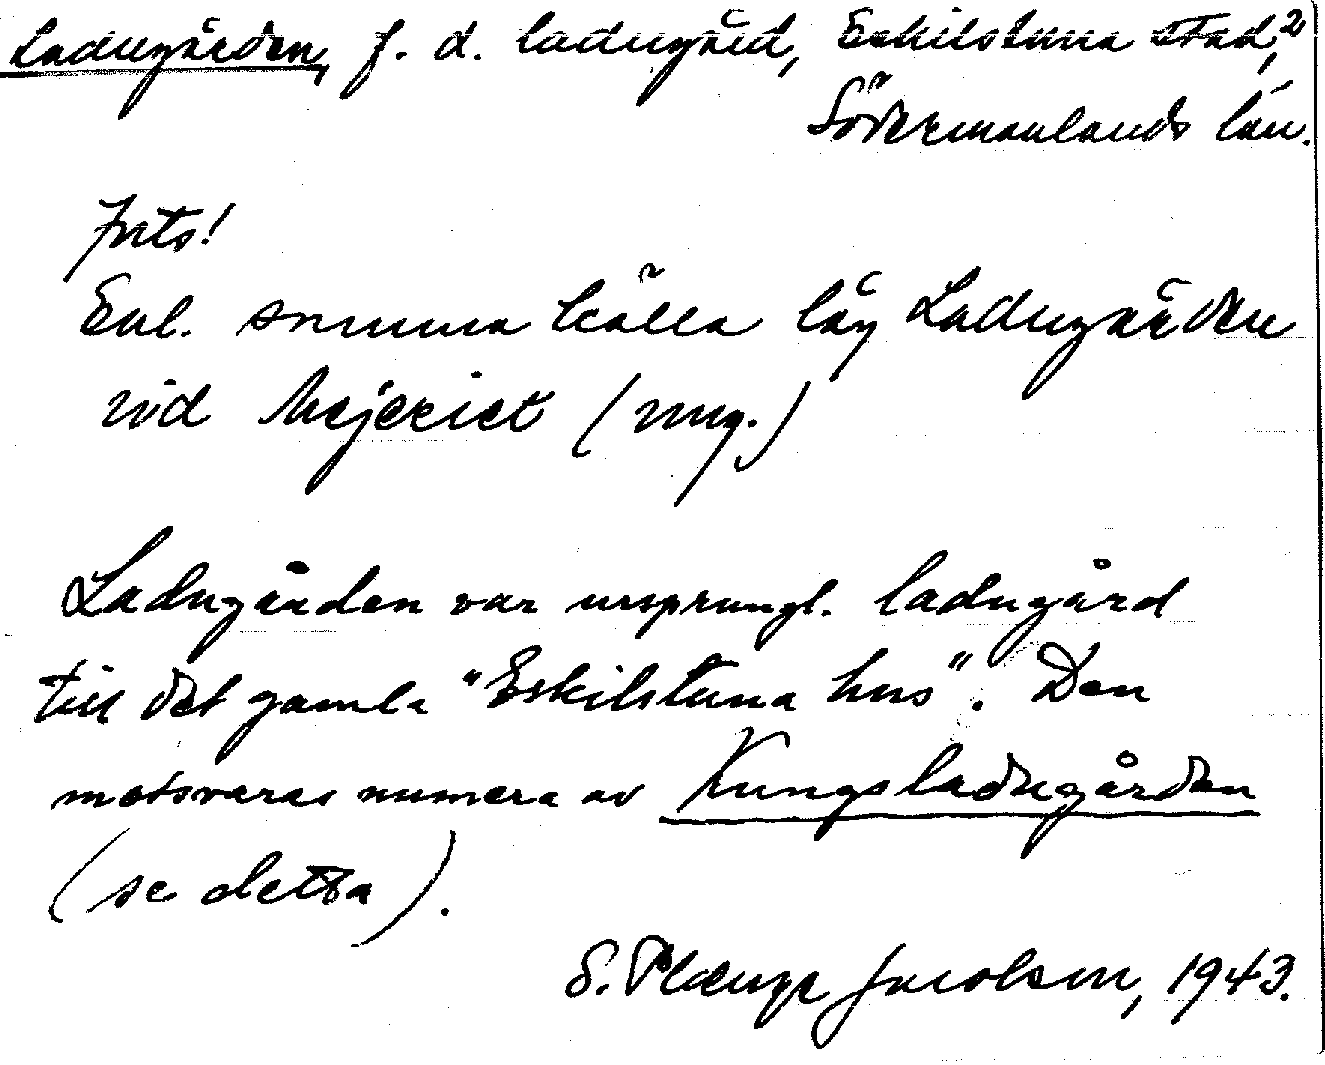 Ladugården, f. d. ladugård, Eskilstuna stad, 2
Södermanlands län.
Forts!
Enl. samma källa låg Ladugården
vid Mejeriet (nug.)
Ladugården var ursprungl. ladugård
till det gamla "Eskilstuna hus". Den
motsvaras numera av Kungsladugården
(se detta).
S. Plænge Jacobson, 1943.